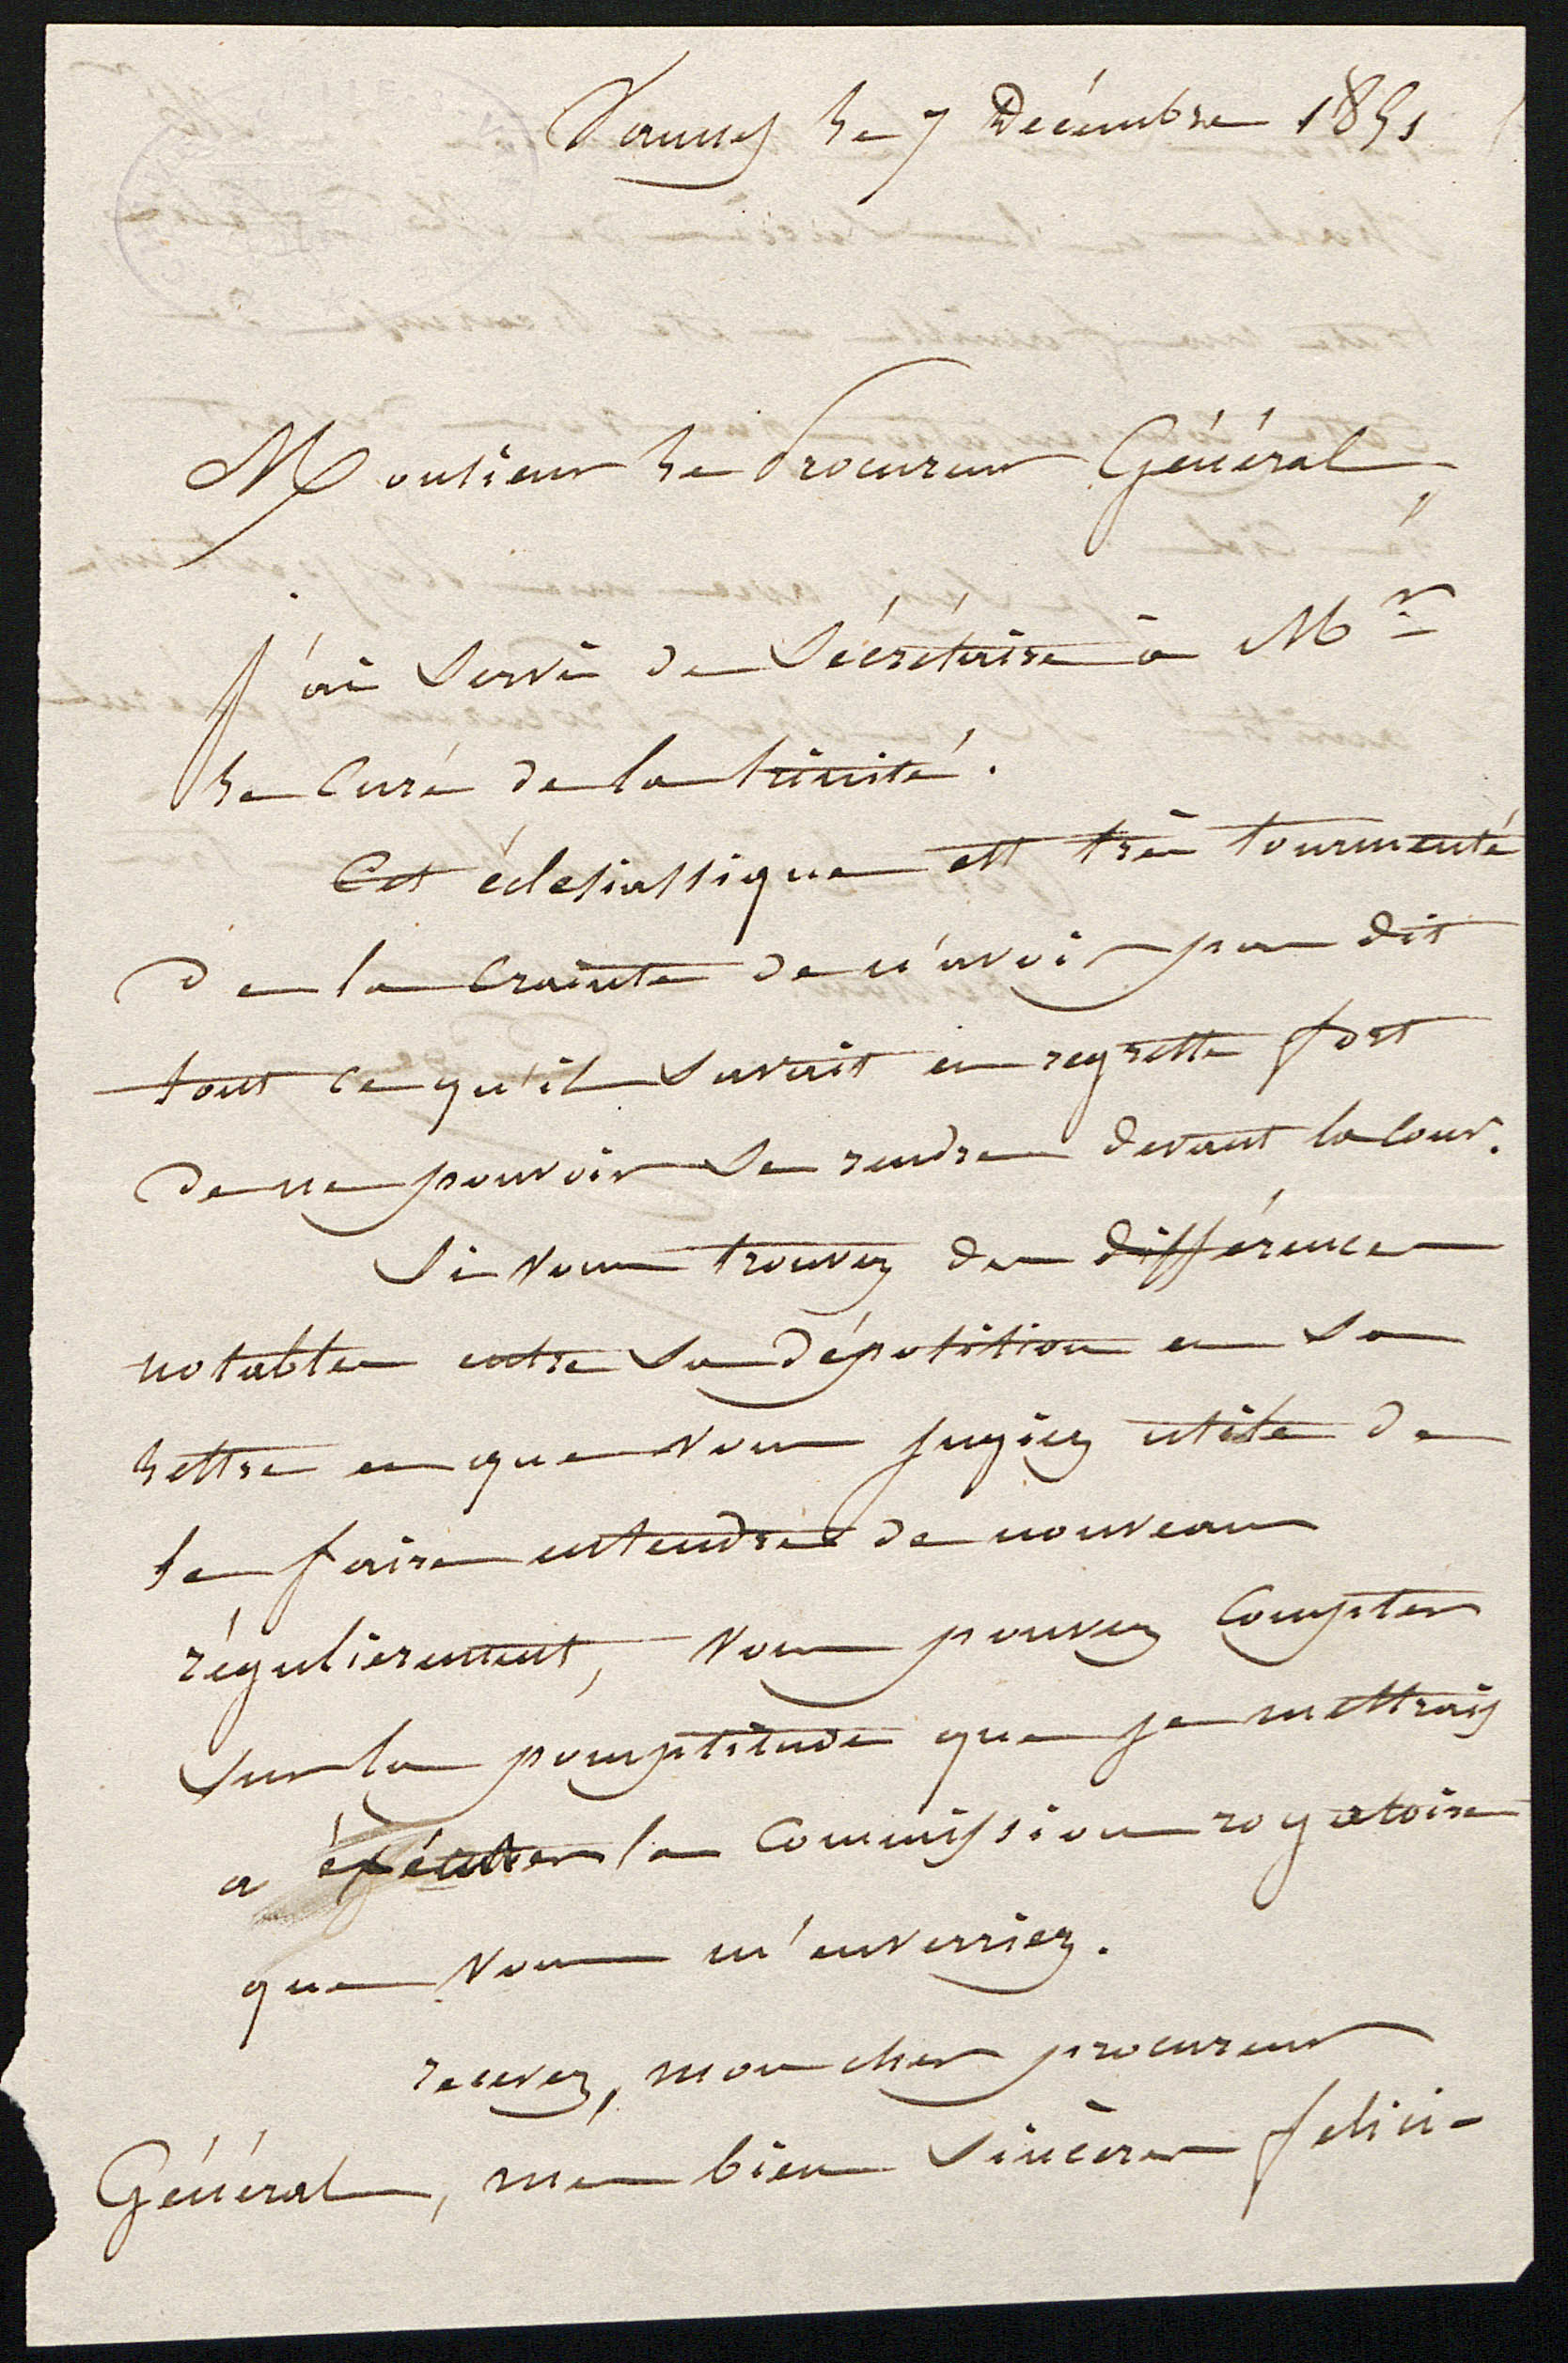 Vannes le 7 Décembre 1851
Monsieur le Procureur Général,
J'ai servi de Sécrétaire à Mr
le Curé de la trinité.
Cet éclesiastique est très tourmenté
de la crainte de n'avoir pas dit
tout ce qu'il savait et regrette fort
de ne pouvoir se rendre devant la Cour.
Si vous trouvez des différences
notables entre sa déposition et sa
lettre et que vous jugiez utile de
le faire entendre de nouveau
régulièrement, vous pouvez compter
sur la pomptitude que je mettrais
a éxécuter la Commission rogatoire
que vous m'enverriez.
recevez, mon cher procureur
Général, mes bien sincères felici-